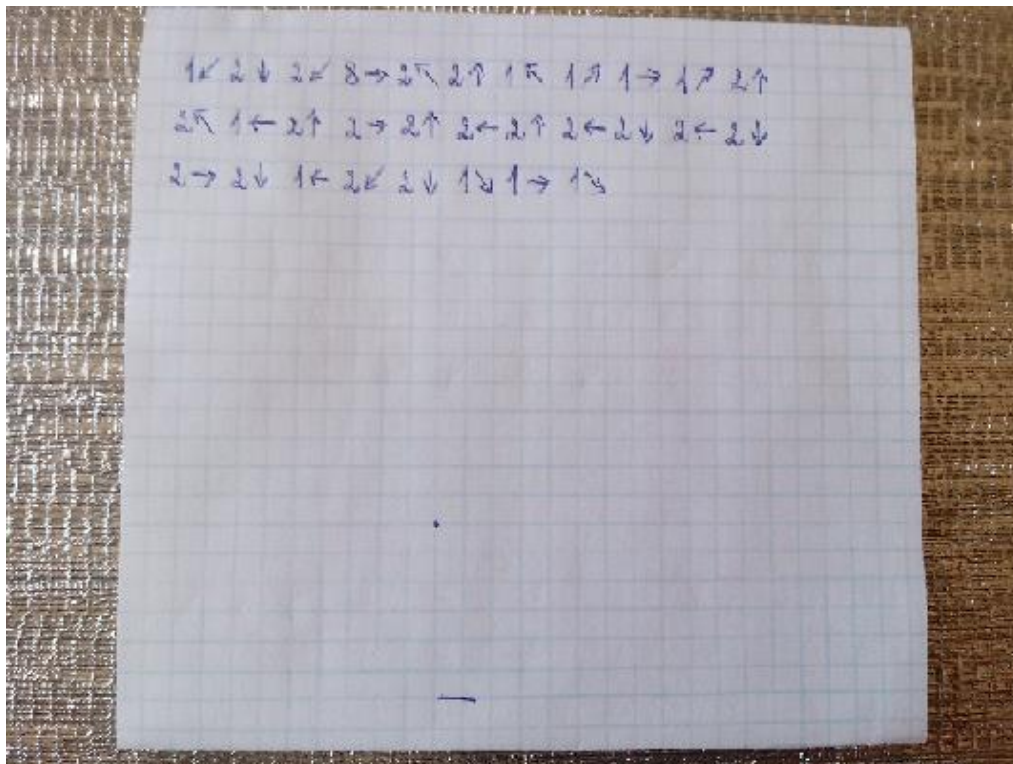 1↙ 2↓ 2↙ 8→ 2↖ 2↑ 1↖ 1↗ 1→ 1↗ 2↑
2↖ 1← 2↑ 2→ 2↑ 2← 2↑ 2← 2↓ 2← 2↓
2→ 2↓ 1← 2↙ 2↓ 1↘ 1→ 1↘